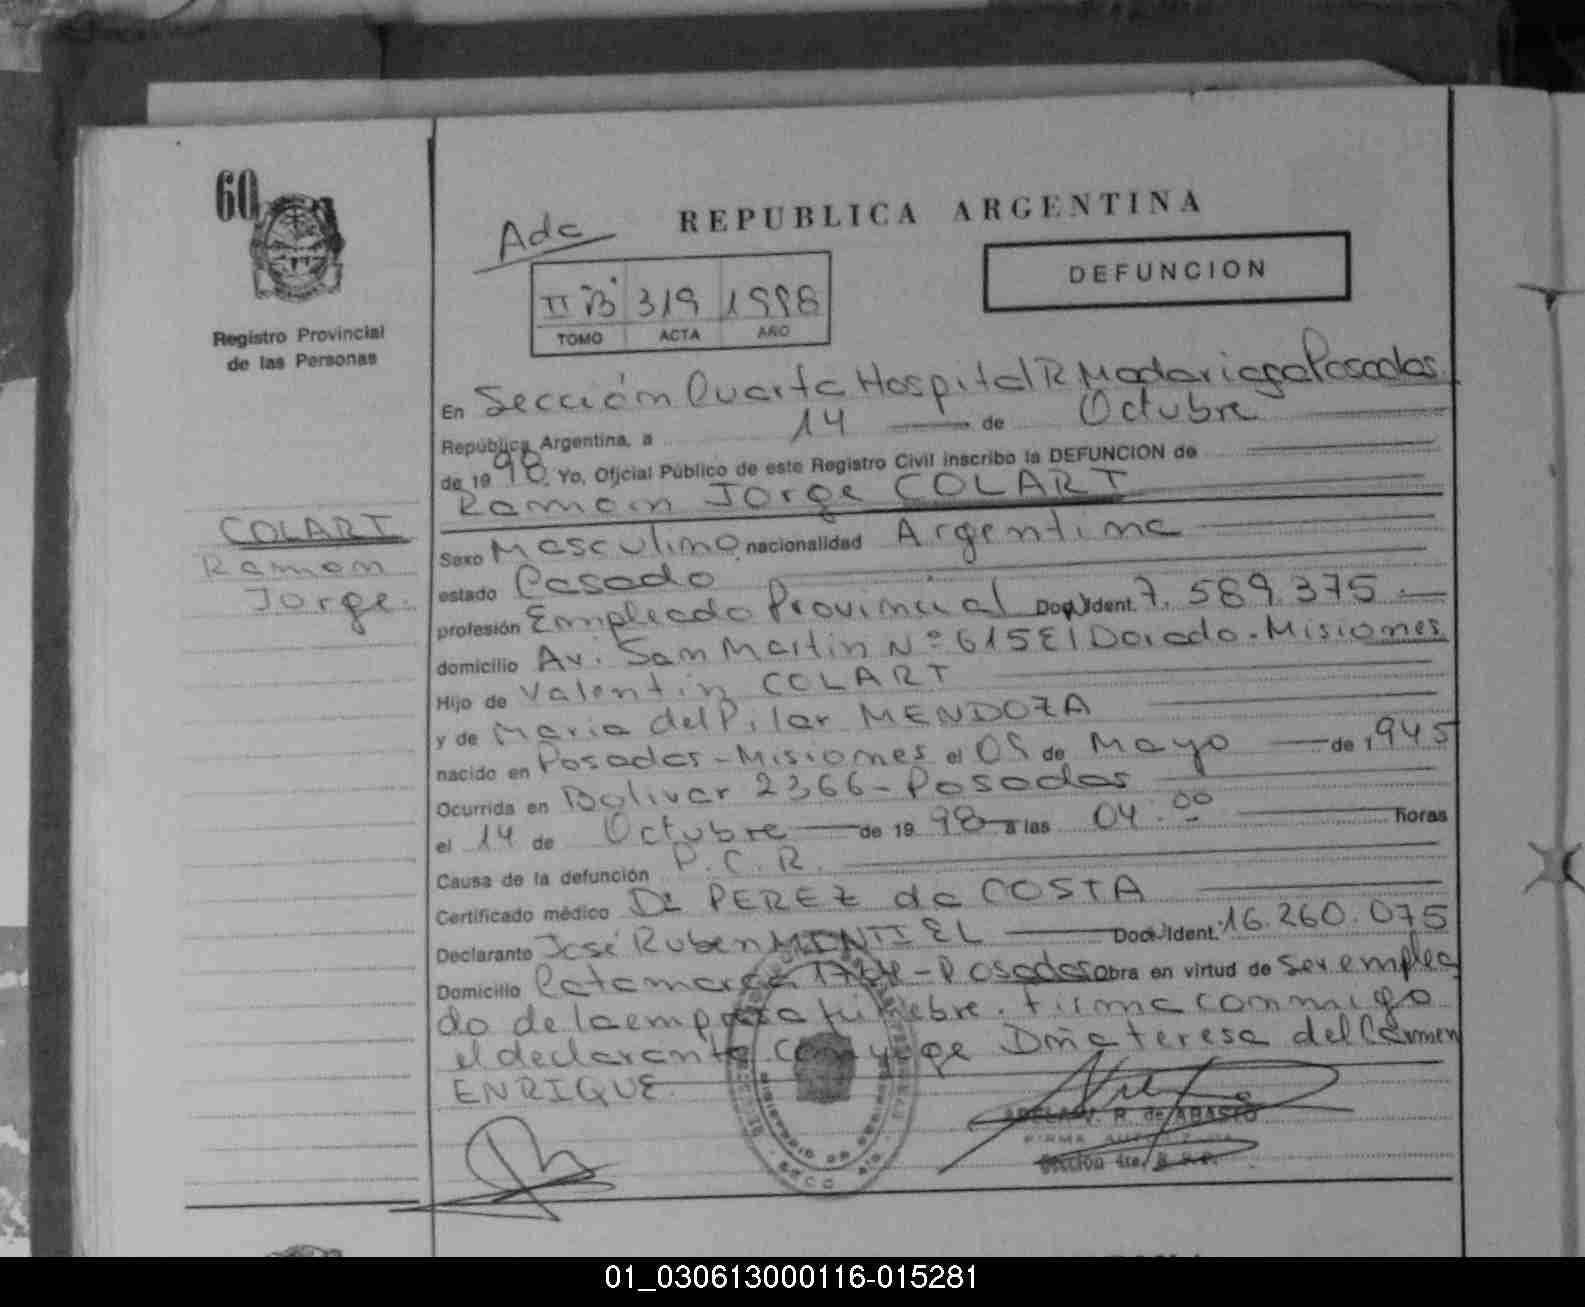 60
Registro Provincial
de las Personas
COLART
Ramon
Jorge.
Adc
REPUBLICA ARGENTINA
DEFUNCION
II "B" 319 1998
TOMO ACTA AÑO
En Sección Cuarta Hospital R Madariaga Posadas
República Argentina, a 14 de Octubre
de 1998. Yo, Oficial Público de este Registro Civil inscribo la DEFUNCION de
Ramon Jorge COLART
Sexo Masculino nacionalidad Argentina
estado Casado
profesión Empleado Provincial Doc. Ident. 7.589.375
domicilio Av. San Martin Nº 615 El Dorado - Misiones
Hijo de Valentin COLART
y de Maria del Pilar MENDOZA
nacido en Posadas - Misiones el 05 de Mayo de 1945
Ocurrida en Bolivar 2366 - Posadas
el 14 de Octubre de 1998 a las 04:00 horas
Causa de la defunción P.C.R.
Certificado médico Dr PEREZ da COSTA
Declarante José Ruben MONTIEL Doc. Ident. 16.260.075
Domicilio Catamarca - Posadas obra en virtud de ser emplea
do de la empresa fúnebre. Firma conmigo
el declarante conyuge Dña teresa del Carmen
ENRIQUE.
ADELA V. R. de ABASTO
FIRMA AUTORIZADA
Sección 4ta.
01_030613000116-015281